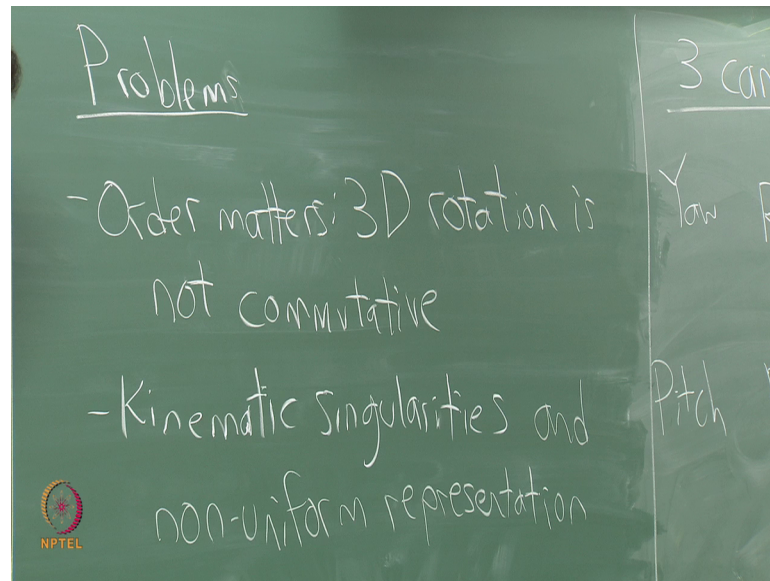 Problems
- Order matters: 3D rotation is
not commutative
- Kinematic singularities and
non-uniform representation
3 can
Yaw
Pitch
NPTEL